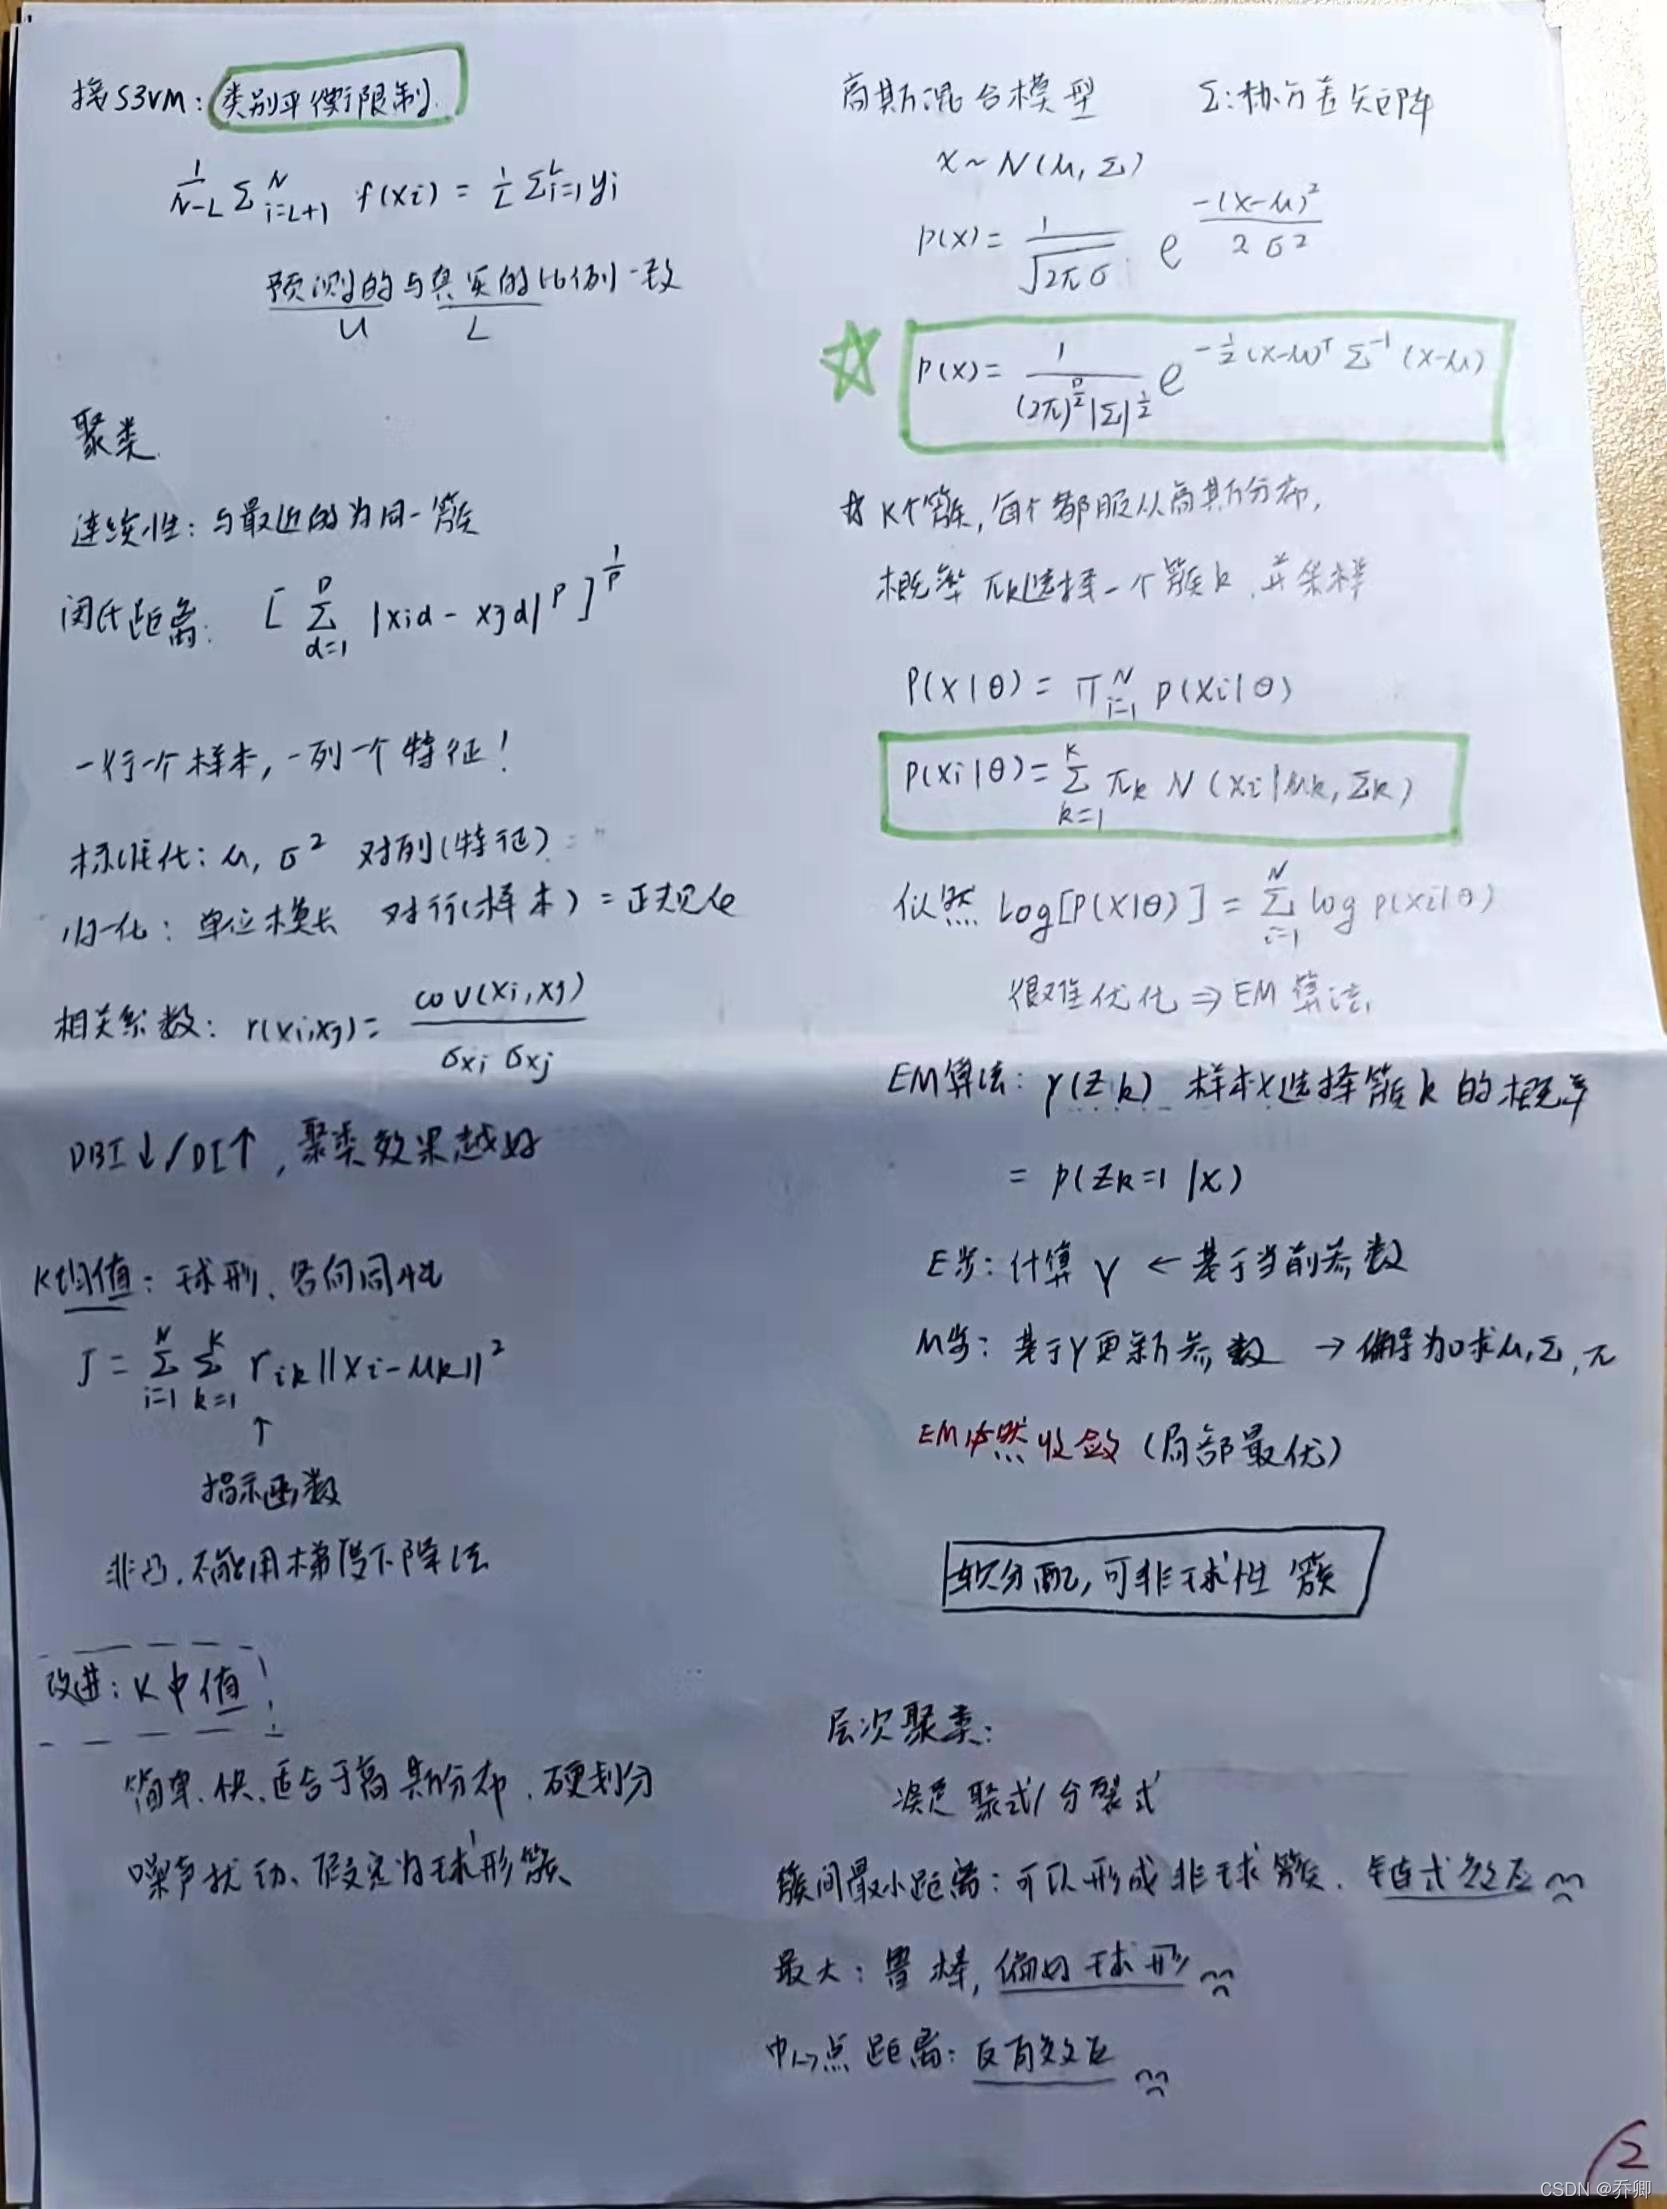 接S3VM：类别平衡限制
1/(N-L) Σ_{i=L+1}^{N} f(xi) = 1/L Σ_{i=1}^{L} yi
预测的与真实的比例一致
U L
聚类
连续性：与最近的为同一簇
闵氏距离：[ Σ_{d=1}^{D} |xid - xjd|^P ]^{1/P}
一行一个样本，一列一个特征！
标准化：μ, σ² 对列(特征)
归一化：单位模长 对行(样本) = 正规化
相关系数：r(xi,xj) = cov(xi,xj) / σxi σxj
DBI↓/DI↑，聚类效果越好
K均值：球形、各向同性
J = Σ_{i=1}^{N} Σ_{k=1}^{K} rik ||xi-μk||²
↑
指示函数
非凸，不能用梯度下降法
改进：K中值
简单、快、适合于高斯分布、硬划分
噪声扰动、假定为球形簇
高斯混合模型 Σ:协方差矩阵
x ~ N(μ, Σ)
p(x) = 1/√2πσ e^{-(x-μ)²/2σ²}
p(x) = 1/((2π)^{D/2} |Σ|^{1/2}) e^{-1/2 (x-μ)^T Σ^{-1} (x-μ)}
☆ K个簇，每个都服从高斯分布，
概率πk选择一个簇k，并采样
P(X|θ) = Π_{i=1}^{N} p(xi|θ)
p(xi|θ) = Σ_{k=1}^{K} πk N(xi|μk, Σk)
似然 log[P(X|θ)] = Σ_{i=1}^{N} log p(xi|θ)
很难优化 ⇒ EM算法
EM算法：γ(Zk) 样本x选择簇k的概率
= p(Zk=1|x)
E步：计算γ ← 基于当前参数
M步：基于γ更新参数 → 偏导为0求μ,Σ,π
EM必然收敛(局部最优)
软分配，可非球性簇
层次聚类：
凝聚式/分裂式
簇间最小距离：可以形成非球簇，链式效应
最大：鲁棒，偏好球形
中心点距离：反有效应
2
CSDN @乔卿